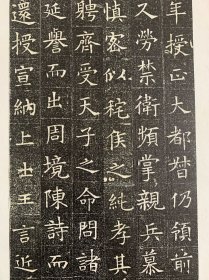 年授正大都督仍領前
久勞禁衛頻掌親兵慕
慎密似秺侯之純孝其
聘齊受天子之命問諸
延譽而出周境陳詩而
還授宣納上士王言近